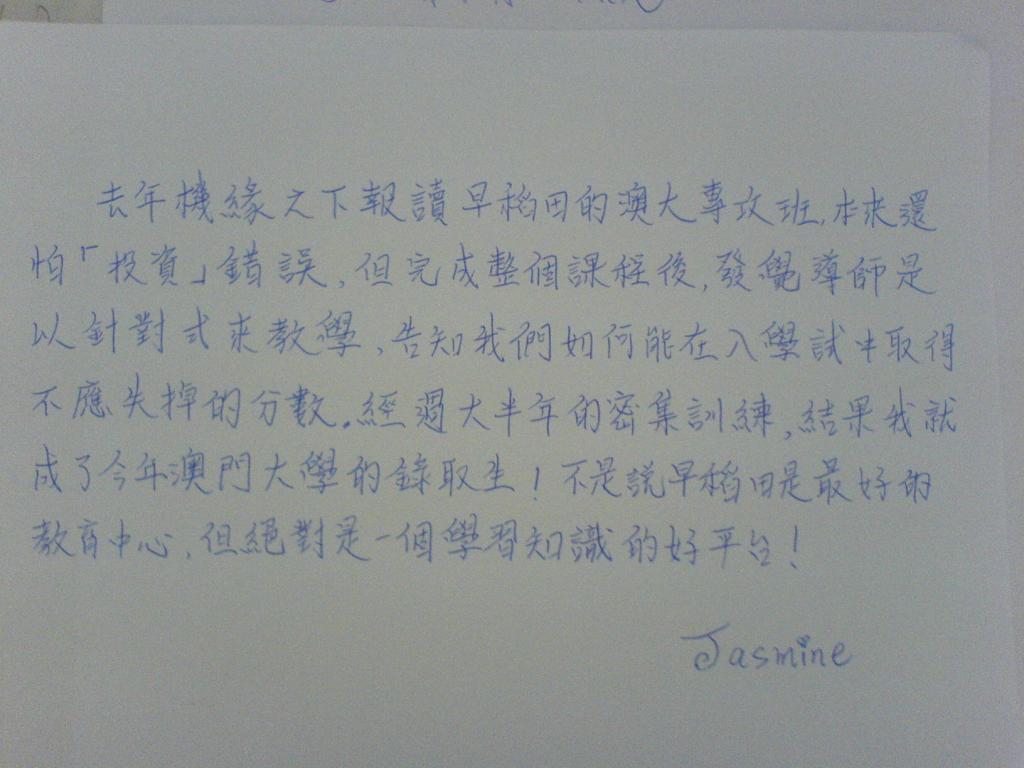 去年機緣之下報讀早稻田的澳大專攻班,本來還
怕「投資」錯誤,但完成整個課程後,發覺導師是
以針對式來教學,告知我們如何能在入學試中取得
不應失掉的分數。經過大半年的密集訓練,結果我就
成了今年澳門大學的錄取生!不是說早稻田是最好的
教育中心,但絕對是一個學習知識的好平台!
Jasmine